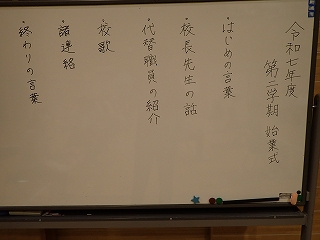 令和七年度
第二学期 始業式
・はじめの言葉
・校長先生の話
・代替職員の紹介
・校歌
・諸連絡
・終わりの言葉